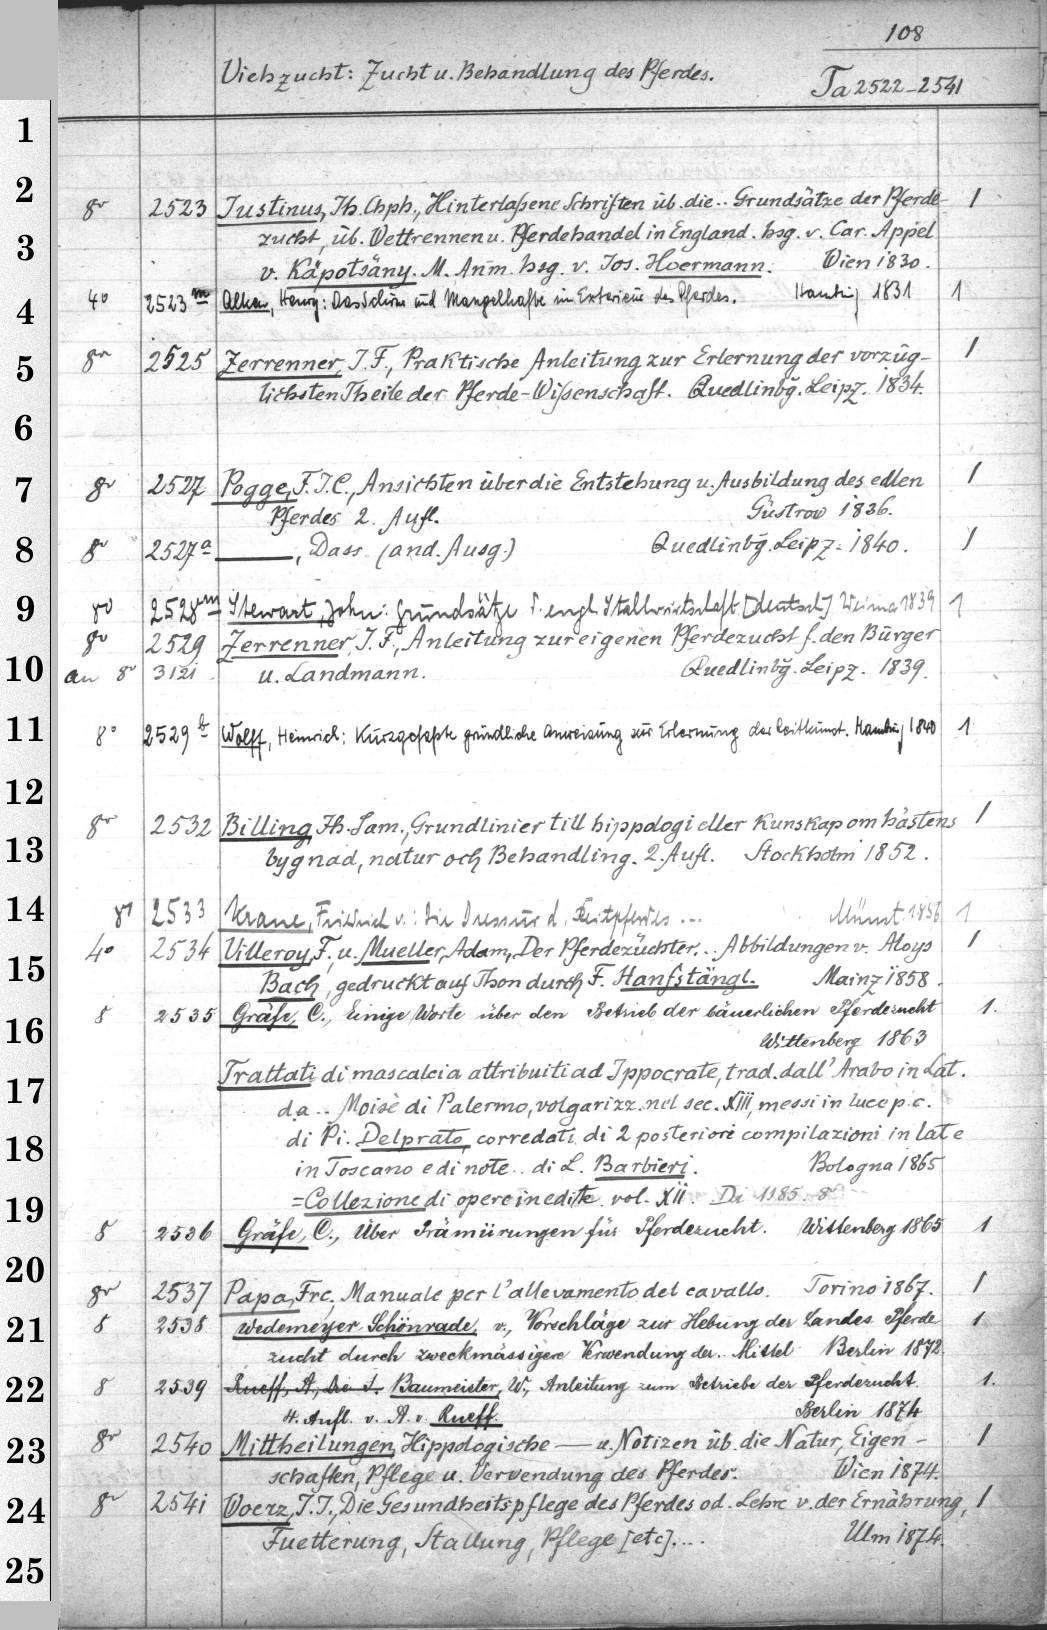 108
Viehzucht: Zucht u. Behandlung des Pferdes. Ta 2522-2541
1
2
8° 2523 Justinus, Th. Chph., Hinterlaßene Schriften üb. die.. Grundsätze der Pferde- 1
3
zucht, üb. Wettrennen u. Pferdehandel in England. hsg. v. Car. Appel
v. Käpotsány. M. Anm. hsg. v. Jos. Hoermann. Wien 1830.
4
4° 2523m Alken, Henry: Das Schöne und Mangelhafte im Exterieur des Pferdes. 1831 1
5
8° 2525 Zerrenner, J. F., Praktische Anleitung zur Erlernung der vorzüg- 1
lichsten Theile der Pferde-Wißenschaft. Quedlinbg. Leipz. 1834.
6
7
8° 2527 Pogge, F. J. C., Ansichten über die Entstehung u. Ausbildung des edlen 1
Pferdes 2. Aufl. Güstrow 1836.
8
8° 2527a ———, Dass. (and. Ausg.) Quedlinbg. Leipz. 1840. 1
9
8° 2528m Stewart, John: Grundsätze d. engl. Stallwirtschaft [deutsch] Weimar 1839 1
8° 2529 Zerrenner, J. F., Anleitung zur eigenen Pferdezucht f. den Bürger
10
an 8° 3121 u. Landmann. Quedlinbg. Leipz. 1839.
11
8° 2529b Wolff, Heinrich: Kurzgefaßte gründliche Anweisung zur Erlernung der Reitkunst. 1840 1
12
8° 2532 Billing, Th. Sam., Grundlinier till hippologi eller kunskap om hästens 1
13
bygnad, natur och Behandling. 2. Aufl. Stockholm 1852.
14
8° 2533 Krane, Friedrich v.: Die Dressur d. Reitpferdes ... Münst. 1856 1
4° 2534 Villeroy, F., u. Mueller, Adam, Der Pferdezüchter... Abbildungen v. Aloys 1
15
Bach, gedruckt auf Thon durch F. Hanfstängl. Mainz 1858.
8 2535 Gräfe, C., Einige Worte über den Betrieb der bäuerlichen Pferdezucht 1.
16
Wittenberg 1863
Trattati di mascalcia attribuiti ad Ippocrate, trad. dall' Arabo in Lat.
17
da .. Moisè di Palermo, volgarizz. nel sec. XIII, messi in luce p. c.
di Pi. Delprato, corredati di 2 posteriori compilazioni in Lat e
18
in Toscano e di note .. di L. Barbieri. Bologna 1865
=Collezione di opere inedite vol. XII. Di 1185 8°
19
8 2536 Gräfe, C., Über Prämiirungen für Pferdezucht. Wittenberg 1865 1
20
8° 2537 Papa, Frc., Manuale per l'allevamento del cavallo. Torino 1867. 1
21
8 2538 Wedemeyer-Schönrade, v., Vorschläge zur Hebung der Landes Pferde 1
zucht durch zweckmässigere Verwendung der.. Mittel Berlin 1872.
22
8 2539 Rueff, A., Baumeister, W., Anleitung zum Betriebe der Pferdezucht. 1.
4. Aufl. v. A. v. Rueff. Berlin 1874
23
8° 2540 Mittheilungen, Hippologische — u. Notizen üb. die Natur, Eigen- 1
schaften, Pflege u. Verwendung des Pferdes. Wien 1874.
24
8° 2541 Woerz, J. J., Die Gesundheitspflege des Pferdes od. Lehre v. der Ernährung, 1
Fuetterung, Stallung, Pflege [etc].... Ulm 1874.
25